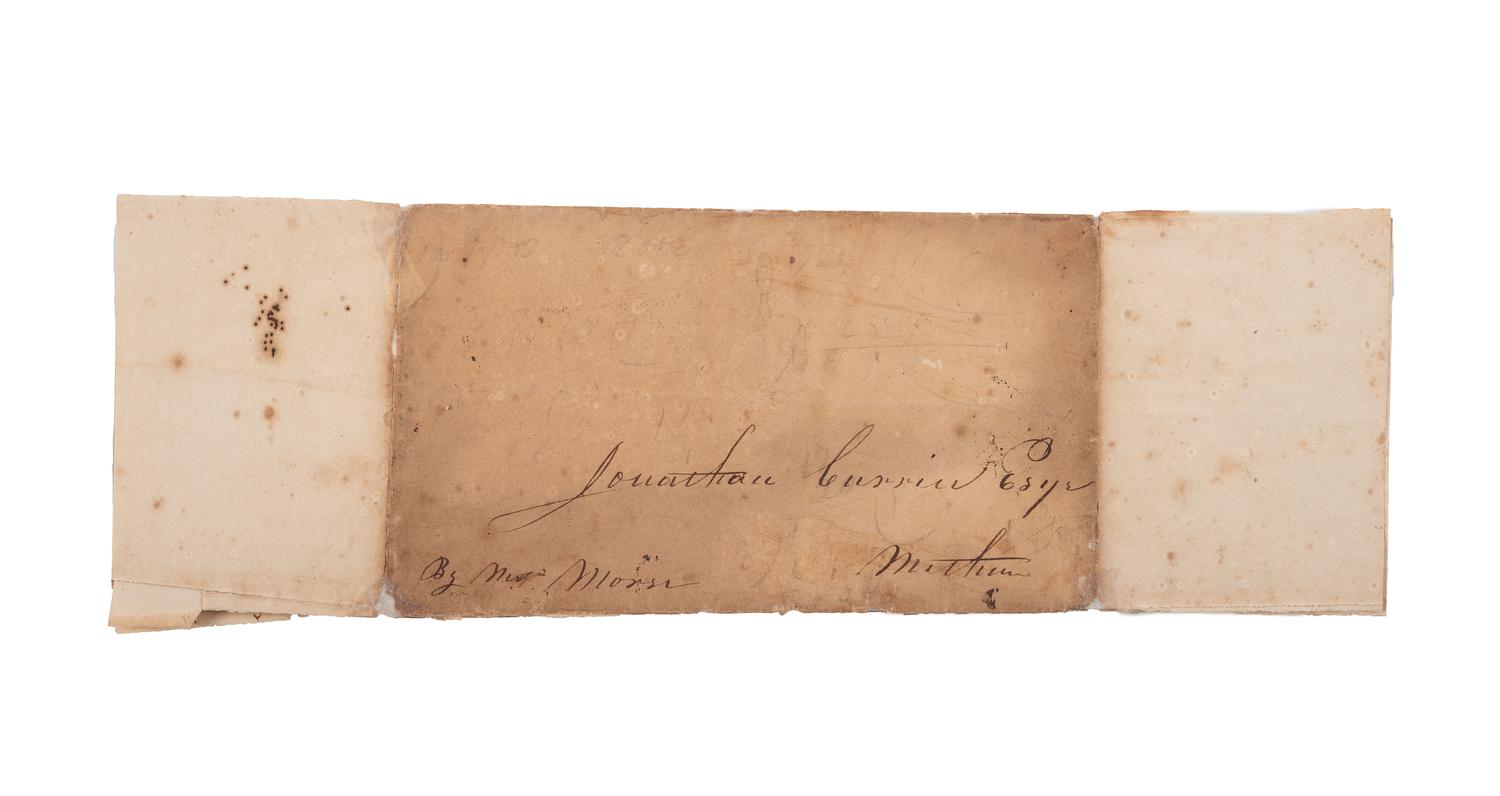 Jonathan Currier Esqr
Methuen
By Morse